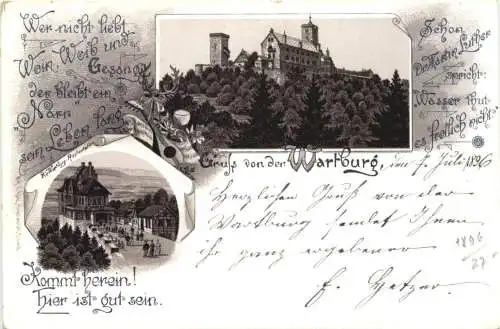 Wer nicht liebt
Wein, Weib und
Gesang
der bleibt ein
"Narr"
sein Leben lang
Schon
Dr. Martin Luther
spricht:
Wasser thut
es freilich nicht
Gruss von der Wartburg, den 7. Juli 1896
Herzlichen Gruß von der
Wartburg sendet Ihnen
ihr ganz ergebener
F. Hetzer
1896
27
Kommt herein!
Hier ist gut sein.